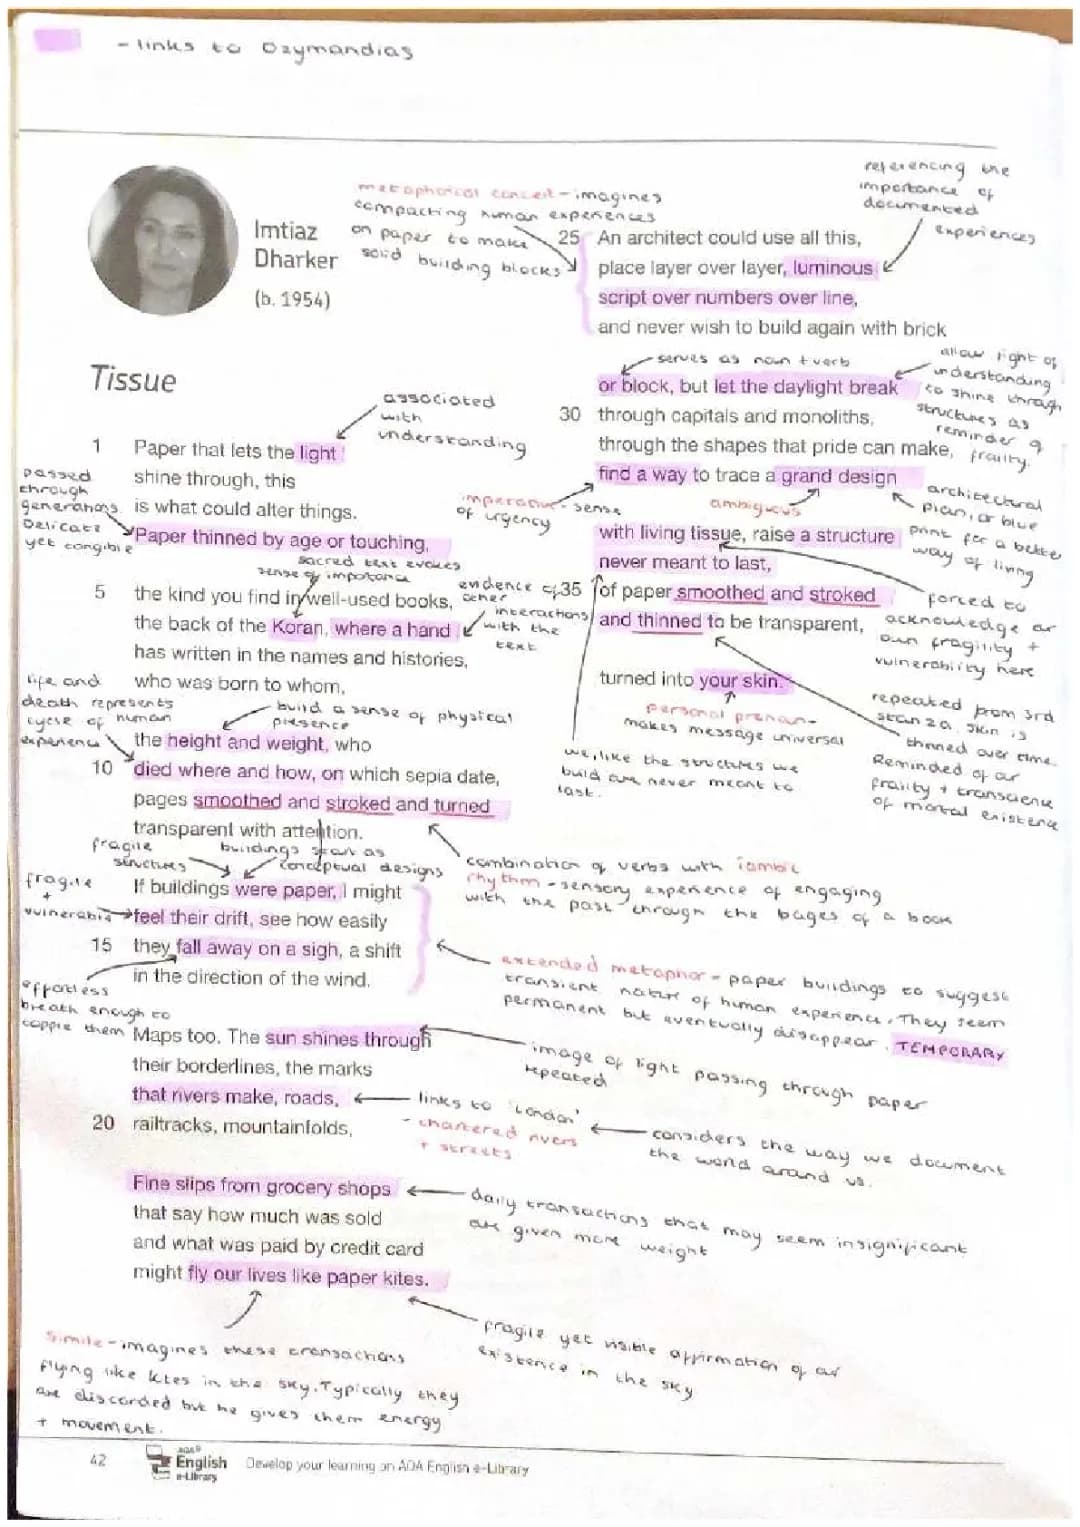 - links to Ozymandias
Imtiaz
Dharker
(b. 1954)
Tissue
1 Paper that lets the light
shine through, this
is what could alter things.
Paper thinned by age or touching,
5 the kind you find in well-used books,
the back of the Koran, where a hand
has written in the names and histories,
who was born to whom,
the height and weight, who
10 died where and how, on which sepia date,
pages smoothed and stroked and turned
transparent with attention.
If buildings were paper, I might
feel their drift, see how easily
15 they fall away on a sigh, a shift
in the direction of the wind.
Maps too. The sun shines through
their borderlines, the marks
that rivers make, roads,
20 railtracks, mountainfolds,
Fine slips from grocery shops
that say how much was sold
and what was paid by credit card
might fly our lives like paper kites.
25 An architect could use all this,
place layer over layer, luminous
script over numbers over line,
and never wish to build again with brick
or block, but let the daylight break
30 through capitals and monoliths,
through the shapes that pride can make,
find a way to trace a grand design
with living tissue, raise a structure
never meant to last,
35 of paper smoothed and stroked
and thinned to be transparent,
turned into your skin.
metaphorical conceit - imagines
compacting human experiences
on paper to make
solid building blocks
referencing the
importance of
documented
experiences
serves as noun + verb
allow light of
understanding
to shine through
structures as
reminder of
frailty.
associated
with
understanding
passed
through
generations.
Delicate
yet tangible
sacred text evokes
sense of importance
evidence of
other
interactions
with the
text
imperative - sense
of urgency
ambiguous
architectural
plan, or blue
print for a better
way of living
forced to
acknowledge our
own fragility +
vulnerability here
life and
death represents
cycle of human
experience
build a sense of physical
presence
personal pronoun -
makes message universal
we, like the structures we
build are never meant to
last.
repeated from 3rd
stanza. Skin is
thinned over time.
Reminded of our
frailty + transcience
of mortal existence
fragile
structures
buildings start as
conceptual designs
combination of verbs with iambic
rhythm - sensory experience of engaging
with the past through the pages of a book
fragile
+
vulnerable
effortless
breath enough to
topple them
extended metaphor - paper buildings to suggest
transient nature of human experience. They seem
permanent but eventually disappear. TEMPORARY
image of light passing through paper
repeated
links to 'London'
- chartered rivers
+ streets
considers the way we document
the world around us.
daily transactions that may seem insignificant
are given more weight
fragile yet visible affirmation of our
existence in the sky
Simile - imagines these transactions
flying like kites in the sky. Typically they
are discarded but he gives them energy
+ movement.
42
AQA
English
e-Library
Develop your learning on AQA English e-Library